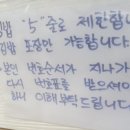 김밥 "5"줄로 제한합니
김밥 포장만 가능합니다
본인 번호순서가 지나가
다시 번호표를 받으셔야
하니 이해부탁드립니다